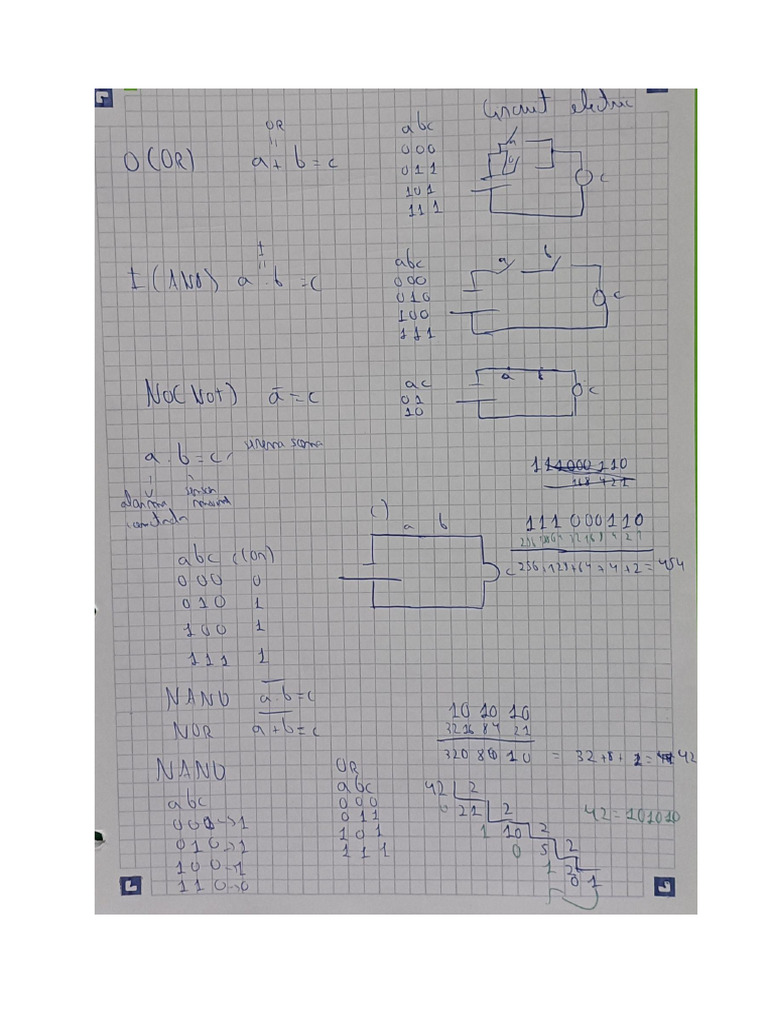 Circuit electric
O (OR)
OR
"
a + b = c
abc
000
011
101
111
c
I (AND)
I
"
a · b = c
abc
000
010
100
111
a b
c
No (Not) ā = c
ac
01
10
a
c
a · b = c, sirena sona
alarma conectada
sensor
111000110
168421
a b
c
111000110
256+128+64+4+2=454
abc (OR)
000 0
010 1
100 1
111 1
NAND \overline{a·b}=c
NOR \overline{a+b}=c
10 10 10
3216 84 21
320 80 10 = 32+8+2=42
NAND
abc
000->1
010->1
100->1
110->0
OR
abc
000
011
101
111
42 2
0 21 2
1 10 2
0 5 2
1 2
0 1
42=101010